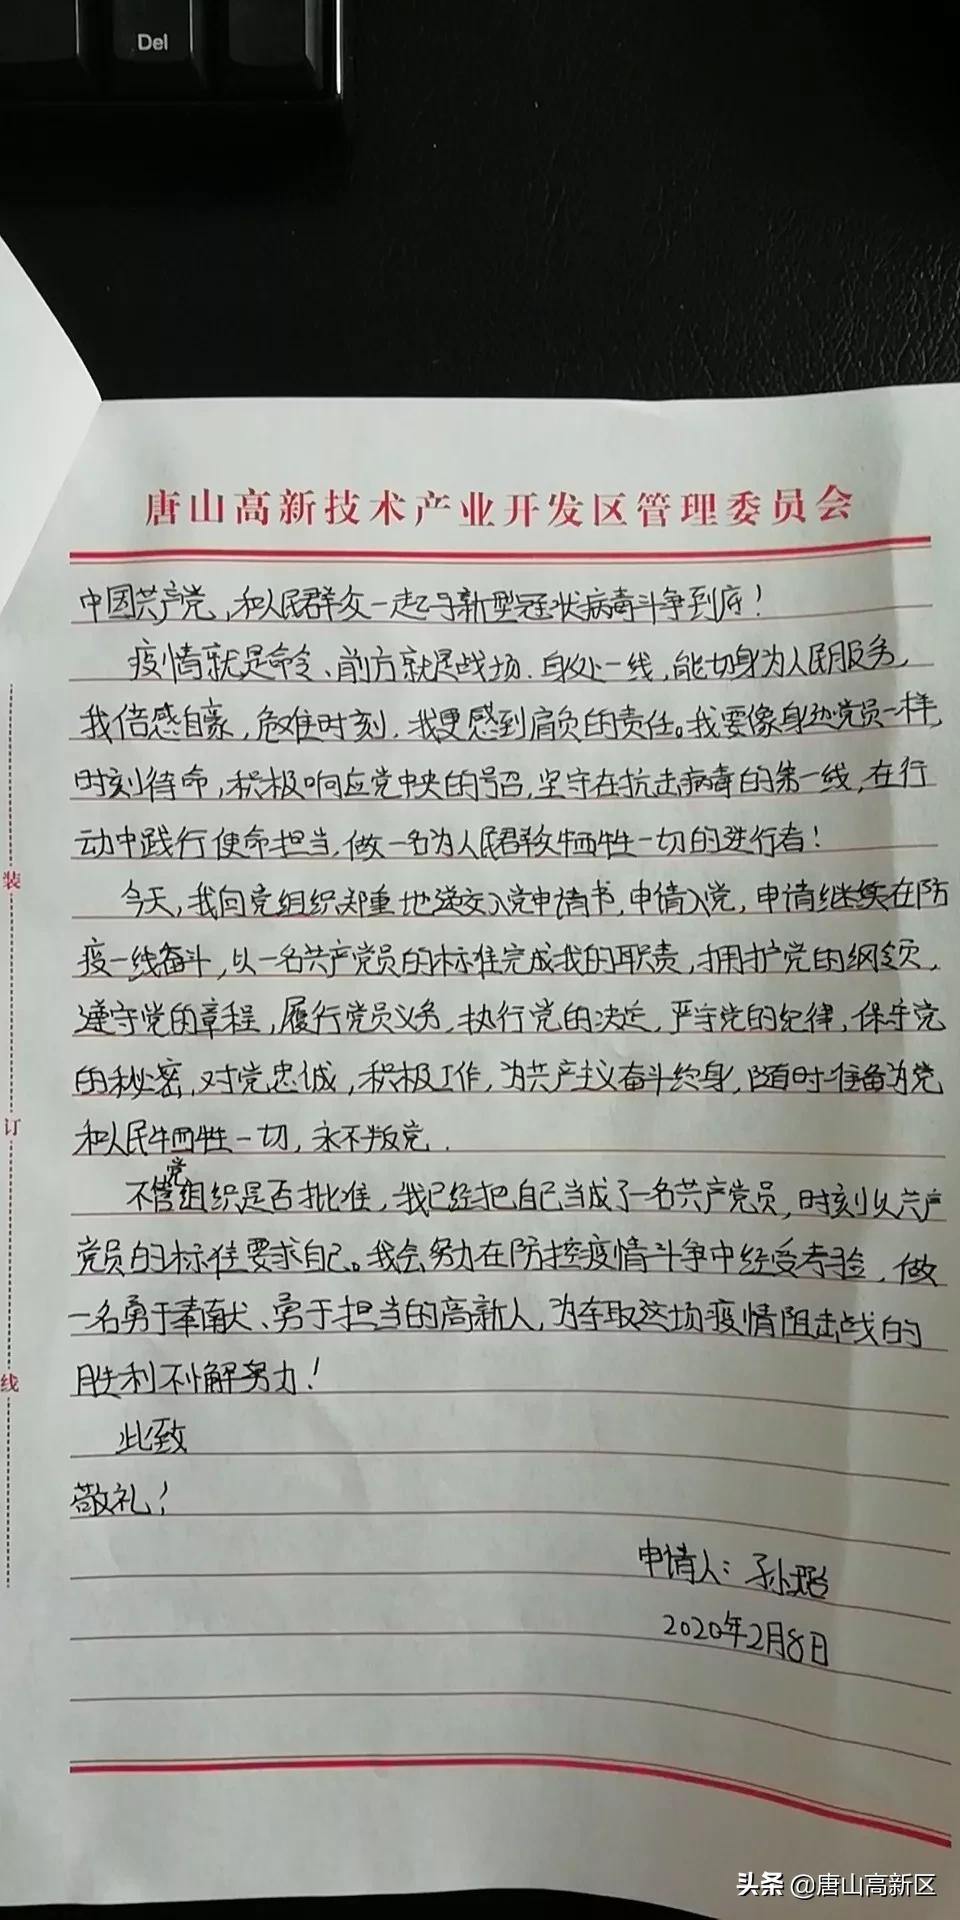 Del
唐山高新技术产业开发区管理委员会
中国共产党,和人民群众一起与新型冠状病毒斗争到底!
疫情就是命令、前方就是战场.身处一线,能切身为人民服务,
我倍感自豪,危难时刻,我更感到肩负的责任。我要像身边党员一样,
时刻待命,积极响应党中央的号召,坚守在抗击病毒的第一线,在行
动中践行使命担当,做一名为人民群众牺牲一切的逆行者!
今天,我向党组织郑重地递交入党申请书,申请入党,申请继续在防
疫一线奋斗,以一名共产党员的标准完成我的职责,拥护党的纲领,
遵守党的章程,履行党员义务,执行党的决定,严守党的纪律,保守党
的秘密,对党忠诚,积极工作,为共产主义奋斗终身,随时准备为党
和人民牺牲一切,永不叛党.
不管党组织是否批准,我已经把自己当成了一名共产党员,时刻以共产
党员的标准要求自己。我会努力在防控疫情斗争中经受考验,做
一名勇于奉献、勇于担当的高新人,为夺取这场疫情阻击战的
胜利不懈努力!
此致
敬礼!
申请人:孙
2020年2月8日
装
订
线
头条 @唐山高新区